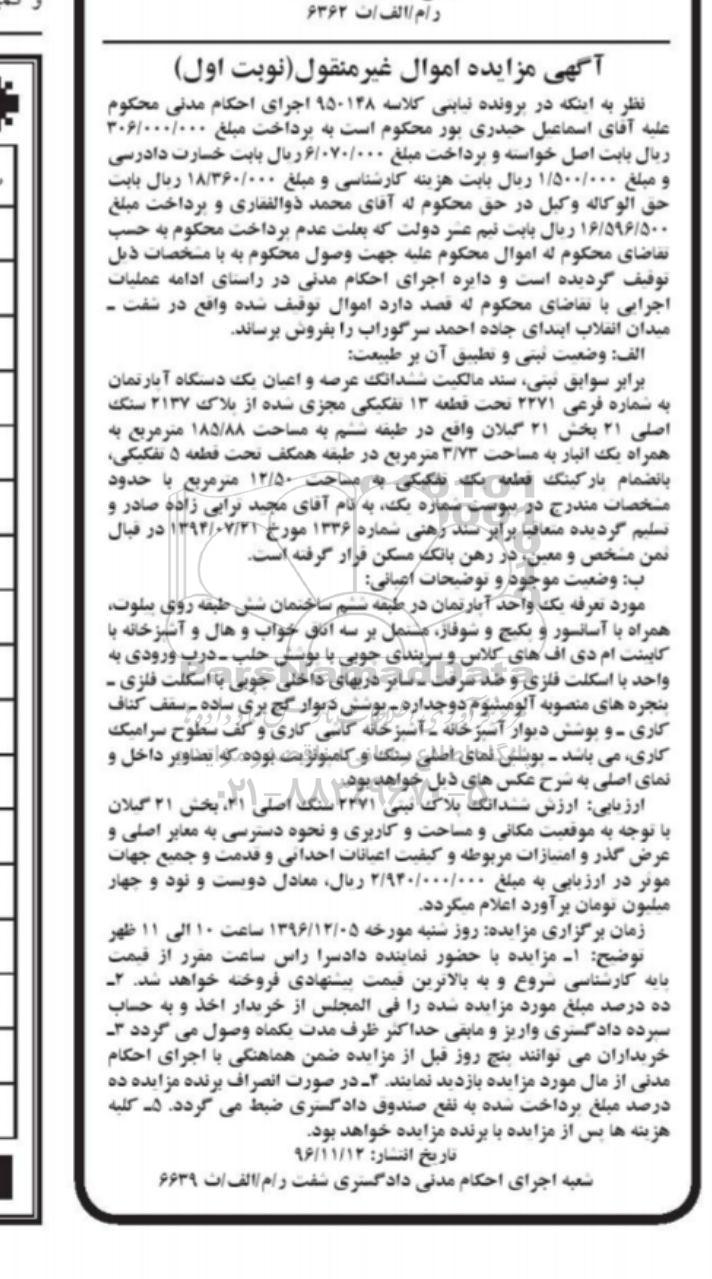 ر/م/الف/ث ۶۳۶۲
آگهی مزایده اموال غیرمنقول(نوبت اول)
نظر به اینکه در پرونده نیابتی کلاسه ۹۵۰۱۴۸ اجرای احکام مدنی محکوم
علیه آقای اسماعیل حیدری پور محکوم است به پرداخت مبلغ ۳۰۶/۰۰۰/۰۰۰
ریال بابت اصل خواسته و پرداخت مبلغ ۶/۰۷۰/۰۰۰ ریال بابت خسارت دادرسی
و مبلغ ۱/۵۰۰/۰۰۰ ریال بابت هزینه کارشناسی و مبلغ ۱۸/۳۶۰/۰۰۰ ریال بابت
حق الوکاله وکیل در حق محکوم له آقای محمد ذوالفقاری و پرداخت مبلغ
۱۶/۵۹۶/۵۰۰ ریال بابت نیم عشر دولت که بعلت عدم پرداخت محکوم به حسب
تقاضای محکوم له اموال محکوم علیه جهت وصول محکوم به با مشخصات ذیل
توقیف گردیده است و دایره اجرای احکام مدنی در راستای ادامه عملیات
اجرایی با تقاضای محکوم له قصد دارد اموال توقیف شده واقع در شفت ـ
میدان انقلاب ابتدای جاده احمد سرگوراب را بفروش برساند.
الف: وضعیت ثبتی و تطبیق آن بر طبیعت:
برابر سوابق ثبتی، سند مالکیت ششدانگ عرصه و اعیان یک دستگاه آپارتمان
به شماره فرعی ۲۲۷۱ تحت قطعه ۱۳ تفکیکی مجزی شده از پلاک ۲۱۳۷ سنگ
اصلی ۲۱ بخش ۲۱ گیلان واقع در طبقه ششم به مساحت ۱۸۵/۸۸ مترمربع به
همراه یک انبار به مساحت ۳/۷۳ مترمربع در طبقه همکف تحت قطعه ۵ تفکیکی،
بانضمام پارکینگ قطعه یک تفکیکی به مساحت ۱۲/۵۰ مترمربع با حدود
مشخصات مندرج در پیوست شماره یک، به نام آقای مجید ترابی زاده صادر و
تسلیم گردیده متعاقبا برابر سند رهنی شماره ۱۳۳۶ مورخ ۱۳۹۴/۰۷/۲۱ در قبال
ثمن مشخص و معین، در رهن بانک مسکن قرار گرفته است.
ب: وضعیت موجود و توضیحات اعیانی:
مورد تعرفه یک واحد آپارتمان در طبقه ششم ساختمان شش طبقه روی پیلوت،
همراه با آسانسور و پکیج و شوفاژ، مشتمل بر سه اتاق خواب و هال و آشپزخانه با
کابینت ام دی اف های کلاس و سربندی چوبی با پوشش حلب ـ درب ورودی به
واحد با اسکلت فلزی و ضد سرقت ـ سایر دربهای داخلی چوبی با اسکلت فلزی ـ
پنجره های منصوبه آلومینیوم دوجداره ـ پوشش دیوار گچ بری ساده ـ سقف کناف
کاری ـ و پوشش دیوار آشپزخانه ـ آشپزخانه کاشی کاری و کف سطوح سرامیک
کاری، می باشد ـ پوشش نمای اصلی سنگ و کامپوزیت بوده که تصاویر داخل و
نمای اصلی به شرح عکس های ذیل خواهد بود.
ارزیابی: ارزش ششدانگ پلاک ثبتی ۲۲۷۱ سنگ اصلی ۲۱، بخش ۲۱ گیلان
با توجه به موقعیت مکانی و مساحت و کاربری و نحوه دسترسی به معابر اصلی و
عرض گذر و امتیازات مربوطه و کیفیت اعیانات احداثی و قدمت و جمیع جهات
موثر در ارزیابی به مبلغ ۲/۹۴۰/۰۰۰/۰۰۰ ریال، معادل دویست و نود و چهار
میلیون تومان برآورد اعلام میگردد.
زمان برگزاری مزایده: روز شنبه مورخه ۱۳۹۶/۱۲/۰۵ ساعت ۱۰ الی ۱۱ ظهر
توضیح: ۱ـ مزایده با حضور نماینده دادسرا راس ساعت مقرر از قیمت
پایه کارشناسی شروع و به بالاترین قیمت پیشنهادی فروخته خواهد شد. ۲ـ
ده درصد مبلغ مورد مزایده شده را فی المجلس از خریدار اخذ و به حساب
سپرده دادگستری واریز و مابقی حداکثر ظرف مدت یکماه وصول می گردد ۳ـ
خریداران می توانند پنج روز قبل از مزایده ضمن هماهنگی با اجرای احکام
مدنی از مال مورد مزایده بازدید نمایند. ۴ـ در صورت انصراف برنده مزایده ده
درصد مبلغ پرداخت شده به نفع صندوق دادگستری ضبط می گردد. ۵ـ کلیه
هزینه ها پس از مزایده با برنده مزایده خواهد بود.
تاریخ انتشار: ۹۶/۱۱/۱۲
شعبه اجرای احکام مدنی دادگستری شفت ر/م/الف/ث ۶۶۳۹
ParsNamadData
۰۲۱-۸۸۳۴۹۶۷۰-۵